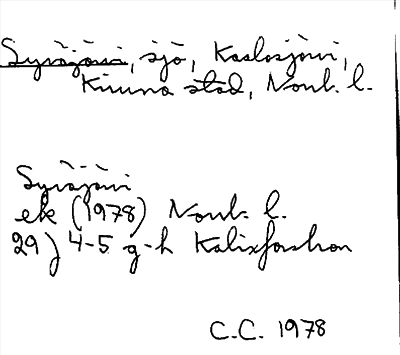 Syväjärvi, sjö, Kaalasjärvi,
Kiruna stad, Norrb. l.
Syväjärvi
ek (1978) Norrb. l.
29J 4-5 g-h Kalixforsbron
C.C. 1978